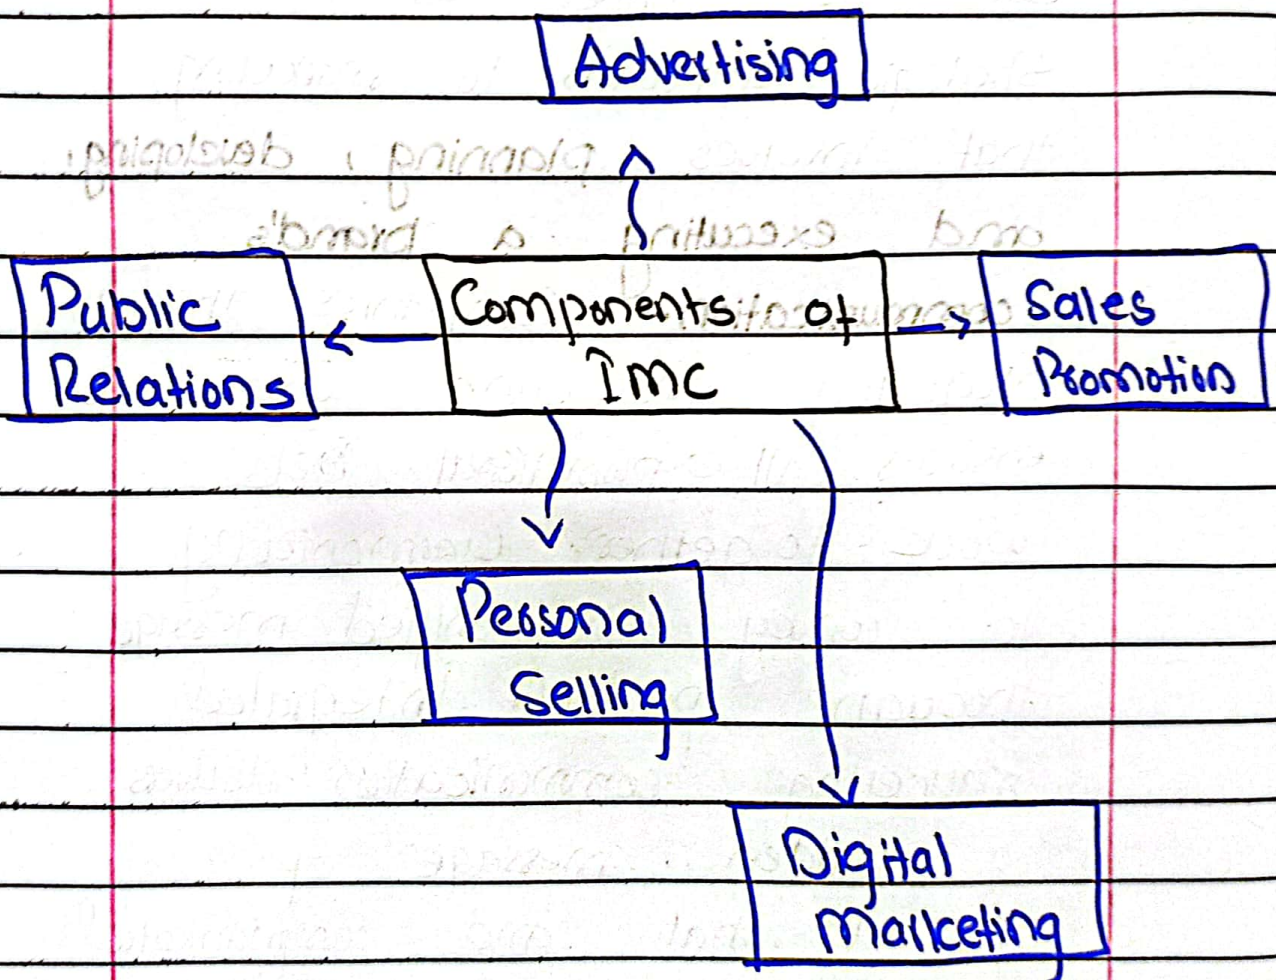 Advertising
Public
Relations
Components of
IMC
Sales
Promotion
Personal
Selling
Digital
Marketing